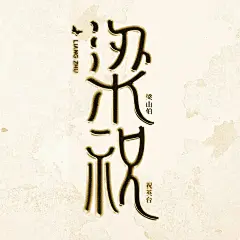 梁祝
LIANG ZHU
梁山伯
祝英台